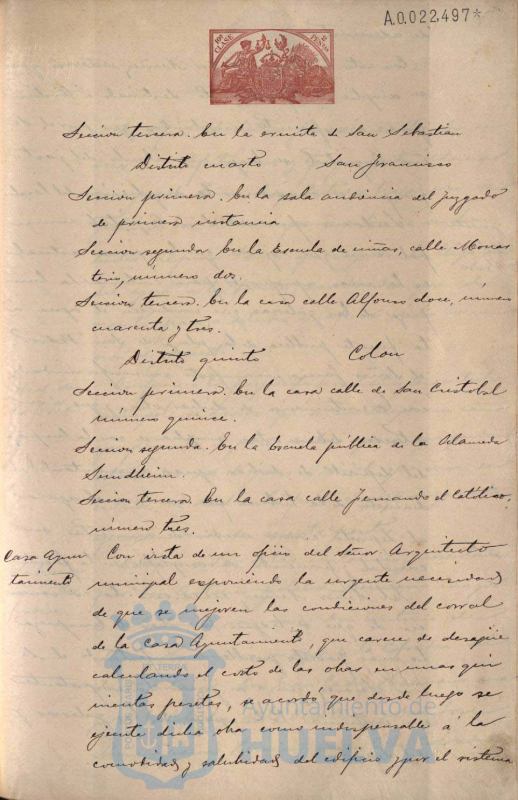 A.0.022,497*
10ª CLASE 2 PESETAS
Seccion tercera. En la ermita de San Sebastian
Distrito cuarto San Francisco
Seccion primera. En la sala audiencia del juzgado
de primera instancia
Seccion segunda. En la Escuela de niñas, calle Monas
terio, número dos.
Seccion tercera. En la casa calle Alfonso doce, número
cuarenta y tres.
Distrito quinto Colon
Seccion primera. En la casa calle de San Cristobal
número quince.
Seccion segunda. En la Escuela pública de la Alameda
Sundheim.
Seccion tercera. En la casa calle Fernando el Católico,
número tres.
Casa Ayun
tamiento
Con vista de un oficio del Señor Arquitecto
municipal exponiendo la urgente necesidad
de que se mejoren las condiciones del corral
de la Casa Ayuntamiento, que carece de desagüe
calculando el costo de las obras en unas qui
nientas pesetas, se acordó que desde luego se
ejecute dicha obra como indispensable á la
comodidad y salubridad del edificio y por el sistema
Ayuntamiento de
HUELVA